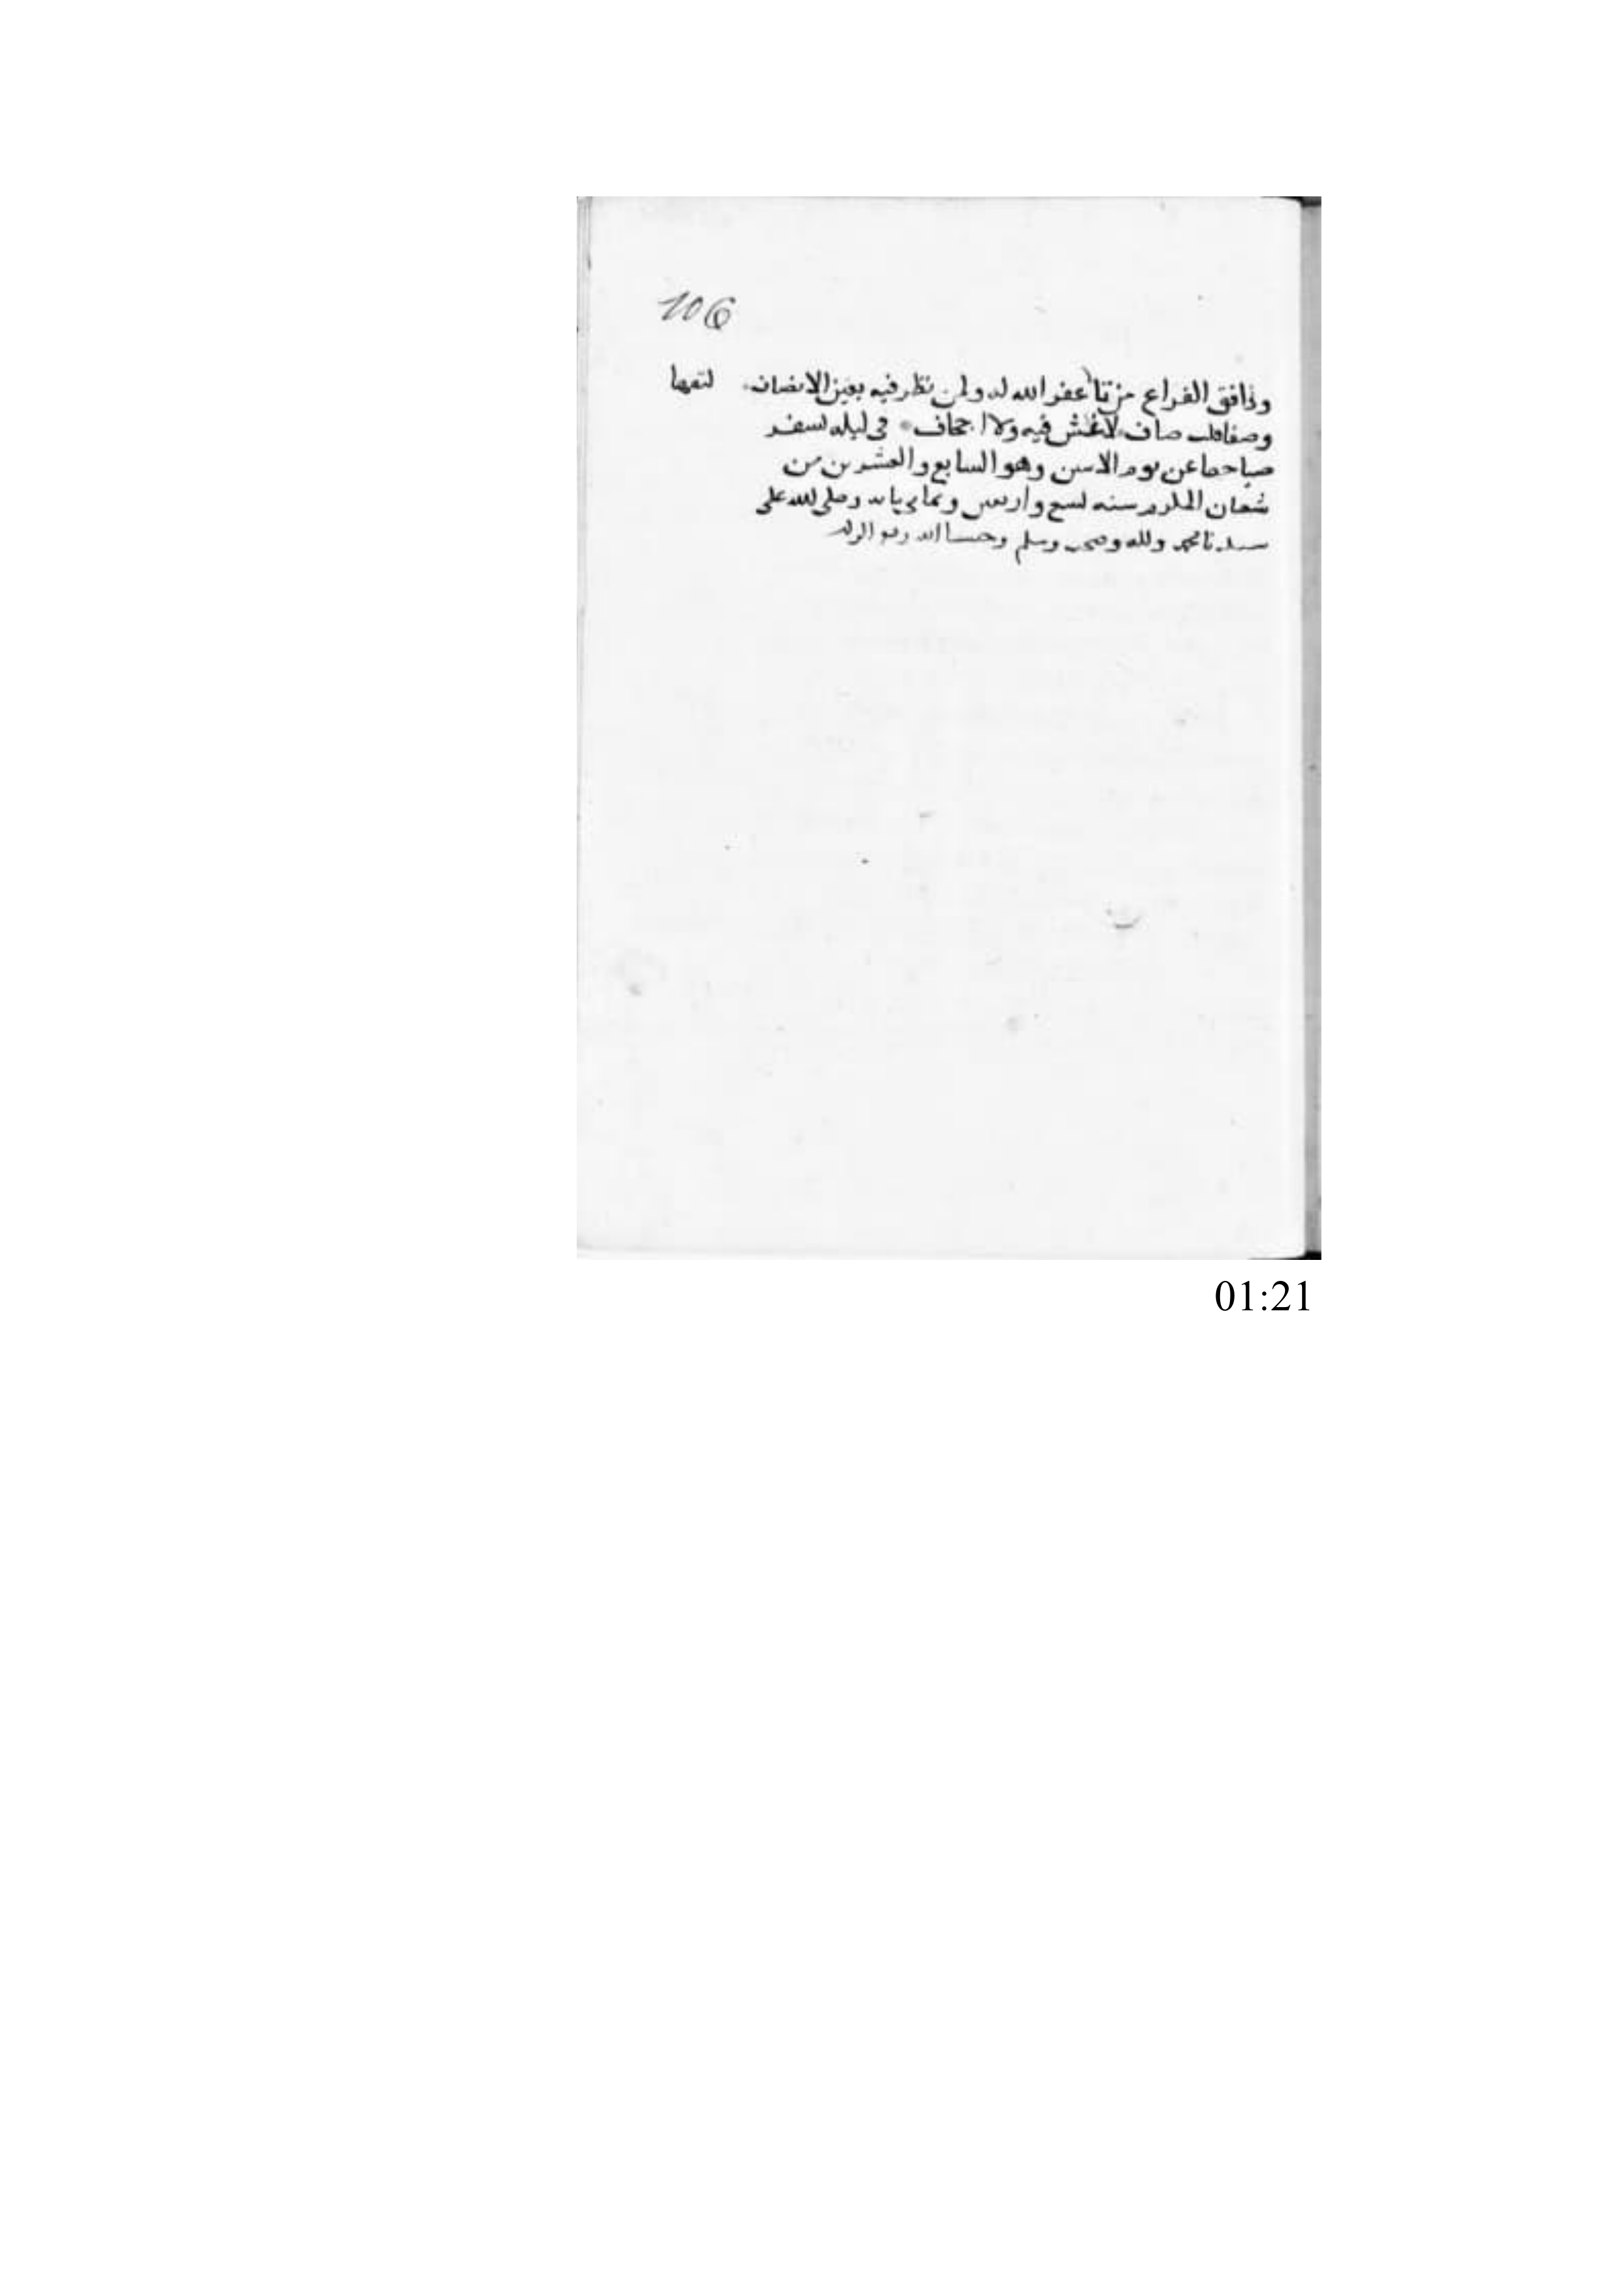 106
ووافق الفراغ من كتابته غفر الله له ولمن نظر فيه بعين الانصاف
وصفا قلب صاف لا غش فيه ولا اجحاف في ليلة تسفر
صباحها عن يوم الاثنين وهو السابع والعشرين من
شعبان المكرم سنه تسع واربعين وثماني ماية وصلى الله على
سيدنا محمد واله وصحبه وسلم وحسبنا الله ونعم الوكيل
01:21